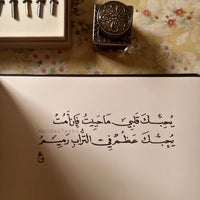 يُحِبُّكَ قَلبِي مَا حَيِيتُ فَإِن أَمُتْ
يُحِبُّكَ عَظْمٌ فِي التُّرَابِ رَمِيمُ